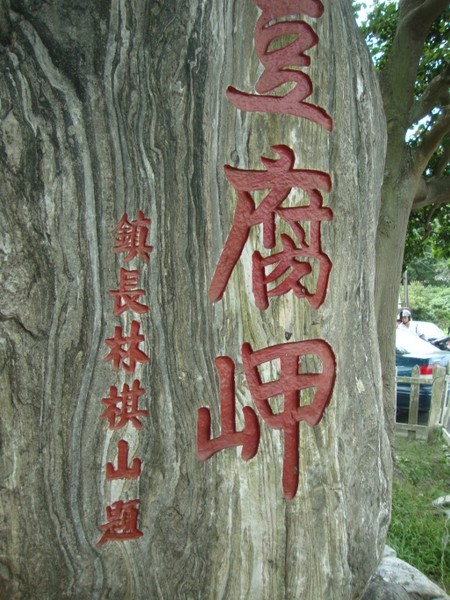 豆腐岬
鎮長林棋山題